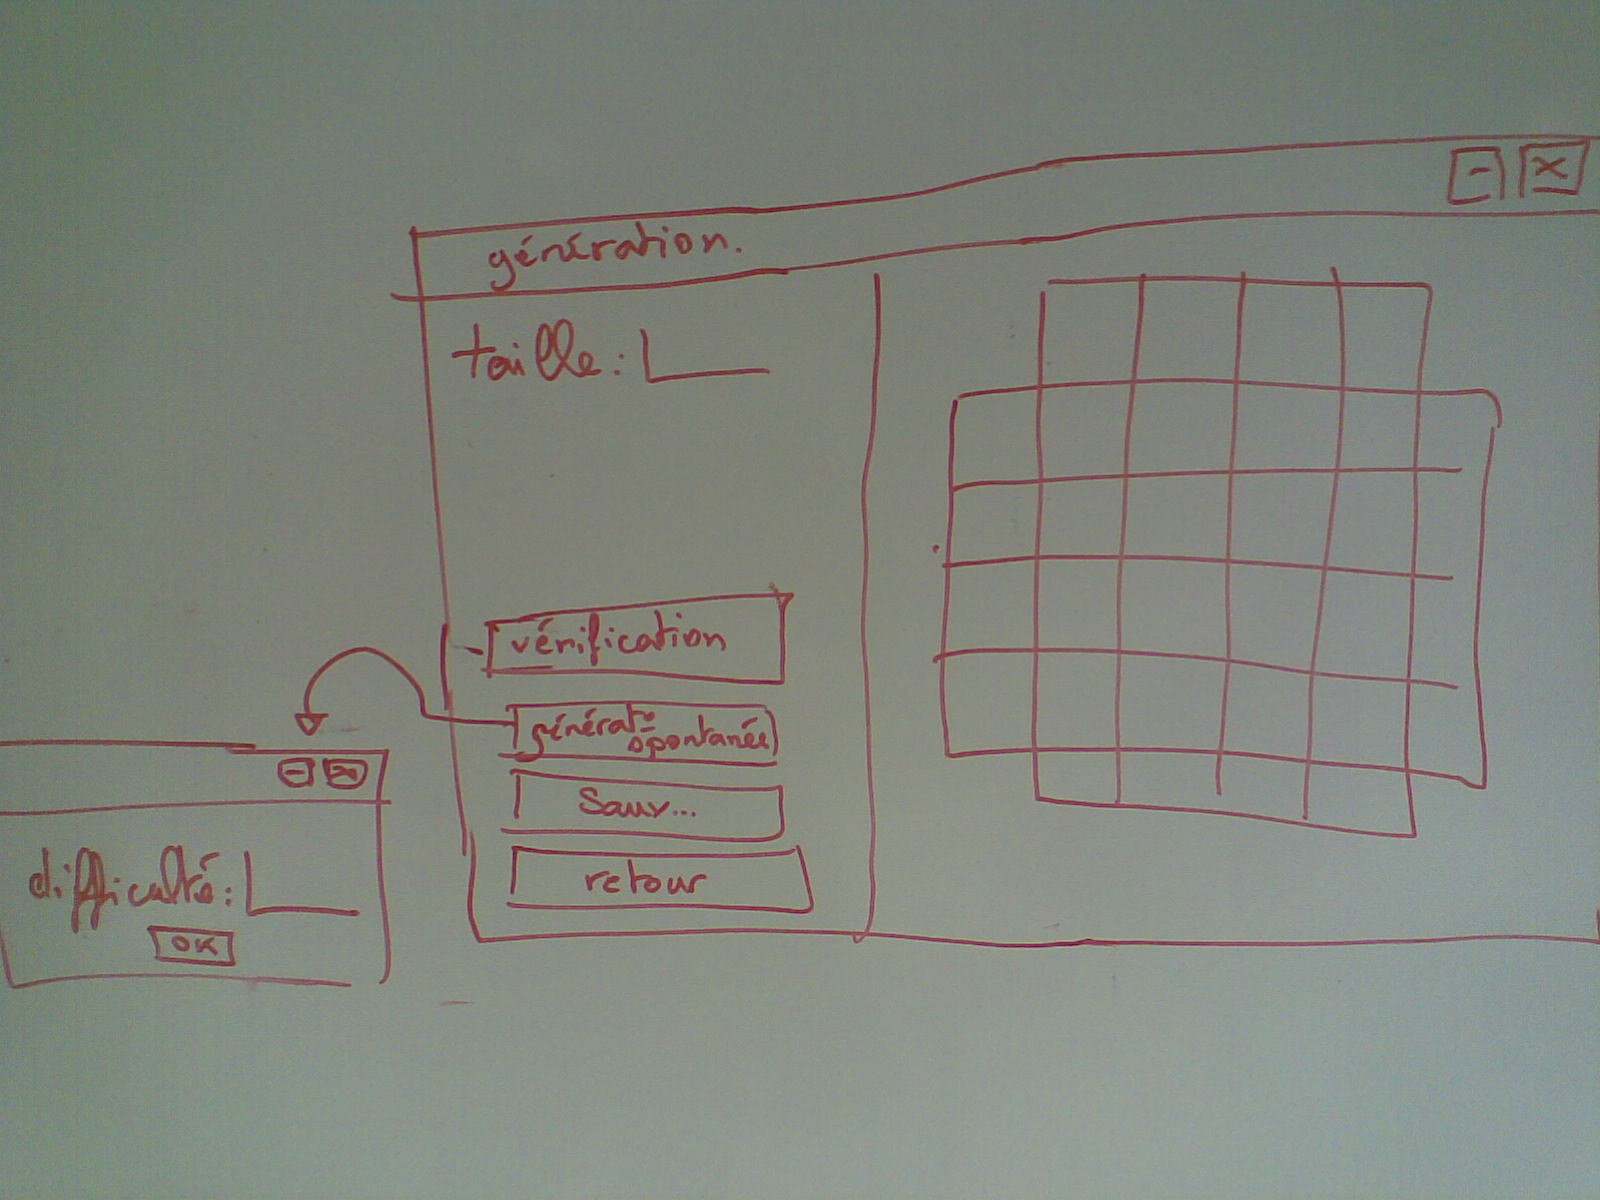 - x
génération.
taille:
vérification
générat°
spontanée
Sauv...
retour
- x
difficulté:
OK